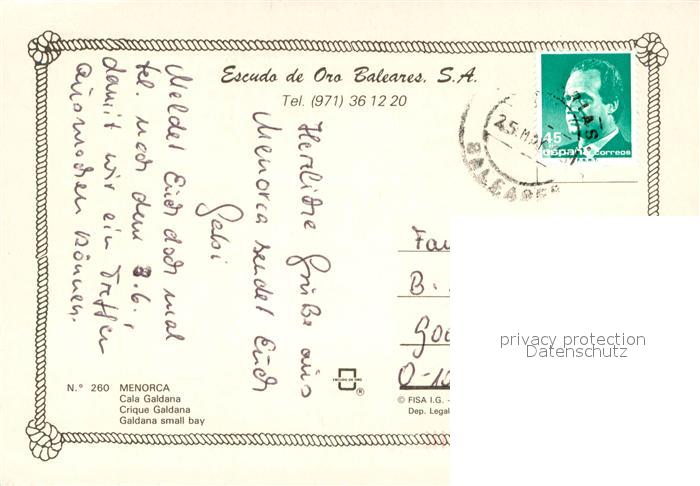 Escudo de Oro Baleares, S.A.
Tel. (971) 36 12 20
Herzliche Grüße aus
Menorca sendet Euch
Gabi
Meldet Euch doch mal
tel. nach dem 3.6.,
damit wir ein Treffen
ausmachen können.
25 MAY
BALEARES
45
españa correos
Fam
B.
O-10
privacy protection
Datenschutz
N.° 260 MENORCA
Cala Galdana
Crique Galdana
Galdana small bay
ESCUDO DE ORO
®
© FISA I.G. -
Dep. Legal